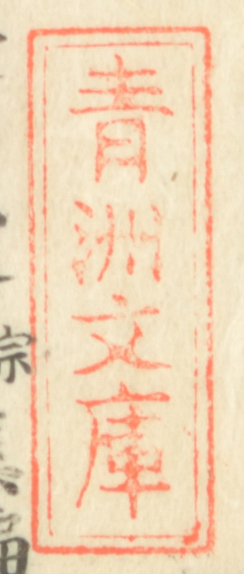 青洲文庫
宗